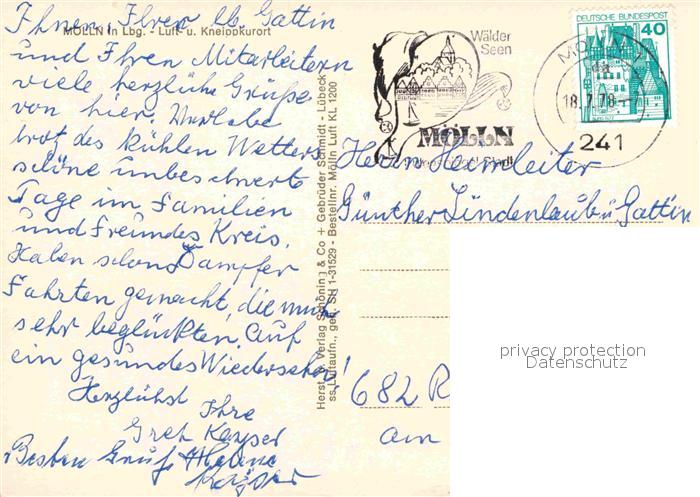 MÖLLN in Lbg. - Luft- u. Kneippkurort
Ihnen, Ihrer lb. Gattin
und Ihren Mitarbeitern
viele herzliche Grüße
von hier. Verlebe
trotz des kühlen Wetters
schöne unbeschwerte
Tage im Familien
und Freundes Kreis.
Haben schon Dampfer
Fahrten gemacht, die mich
sehr beglückten. Auf
ein gesundes Wiedersehen!
Herzlichst Ihre
Gret Kayser
Besten Gruß, Helene
Kayser
Herst. u. Verlag Schöning & Co + Gebrüder Schmidt - Lübeck
ss Luftaufn., gen. SH 1-31529 - Bestellnr. Mölln Luft KL 1200
Wälder
Seen
MÖLLN
DEUTSCHE BUNDESPOST
40
da
18.7.78
241
Herrn Heimleiter
Günther Lindenlaub u Gattin
682 R
am
privacy protection
Datenschutz